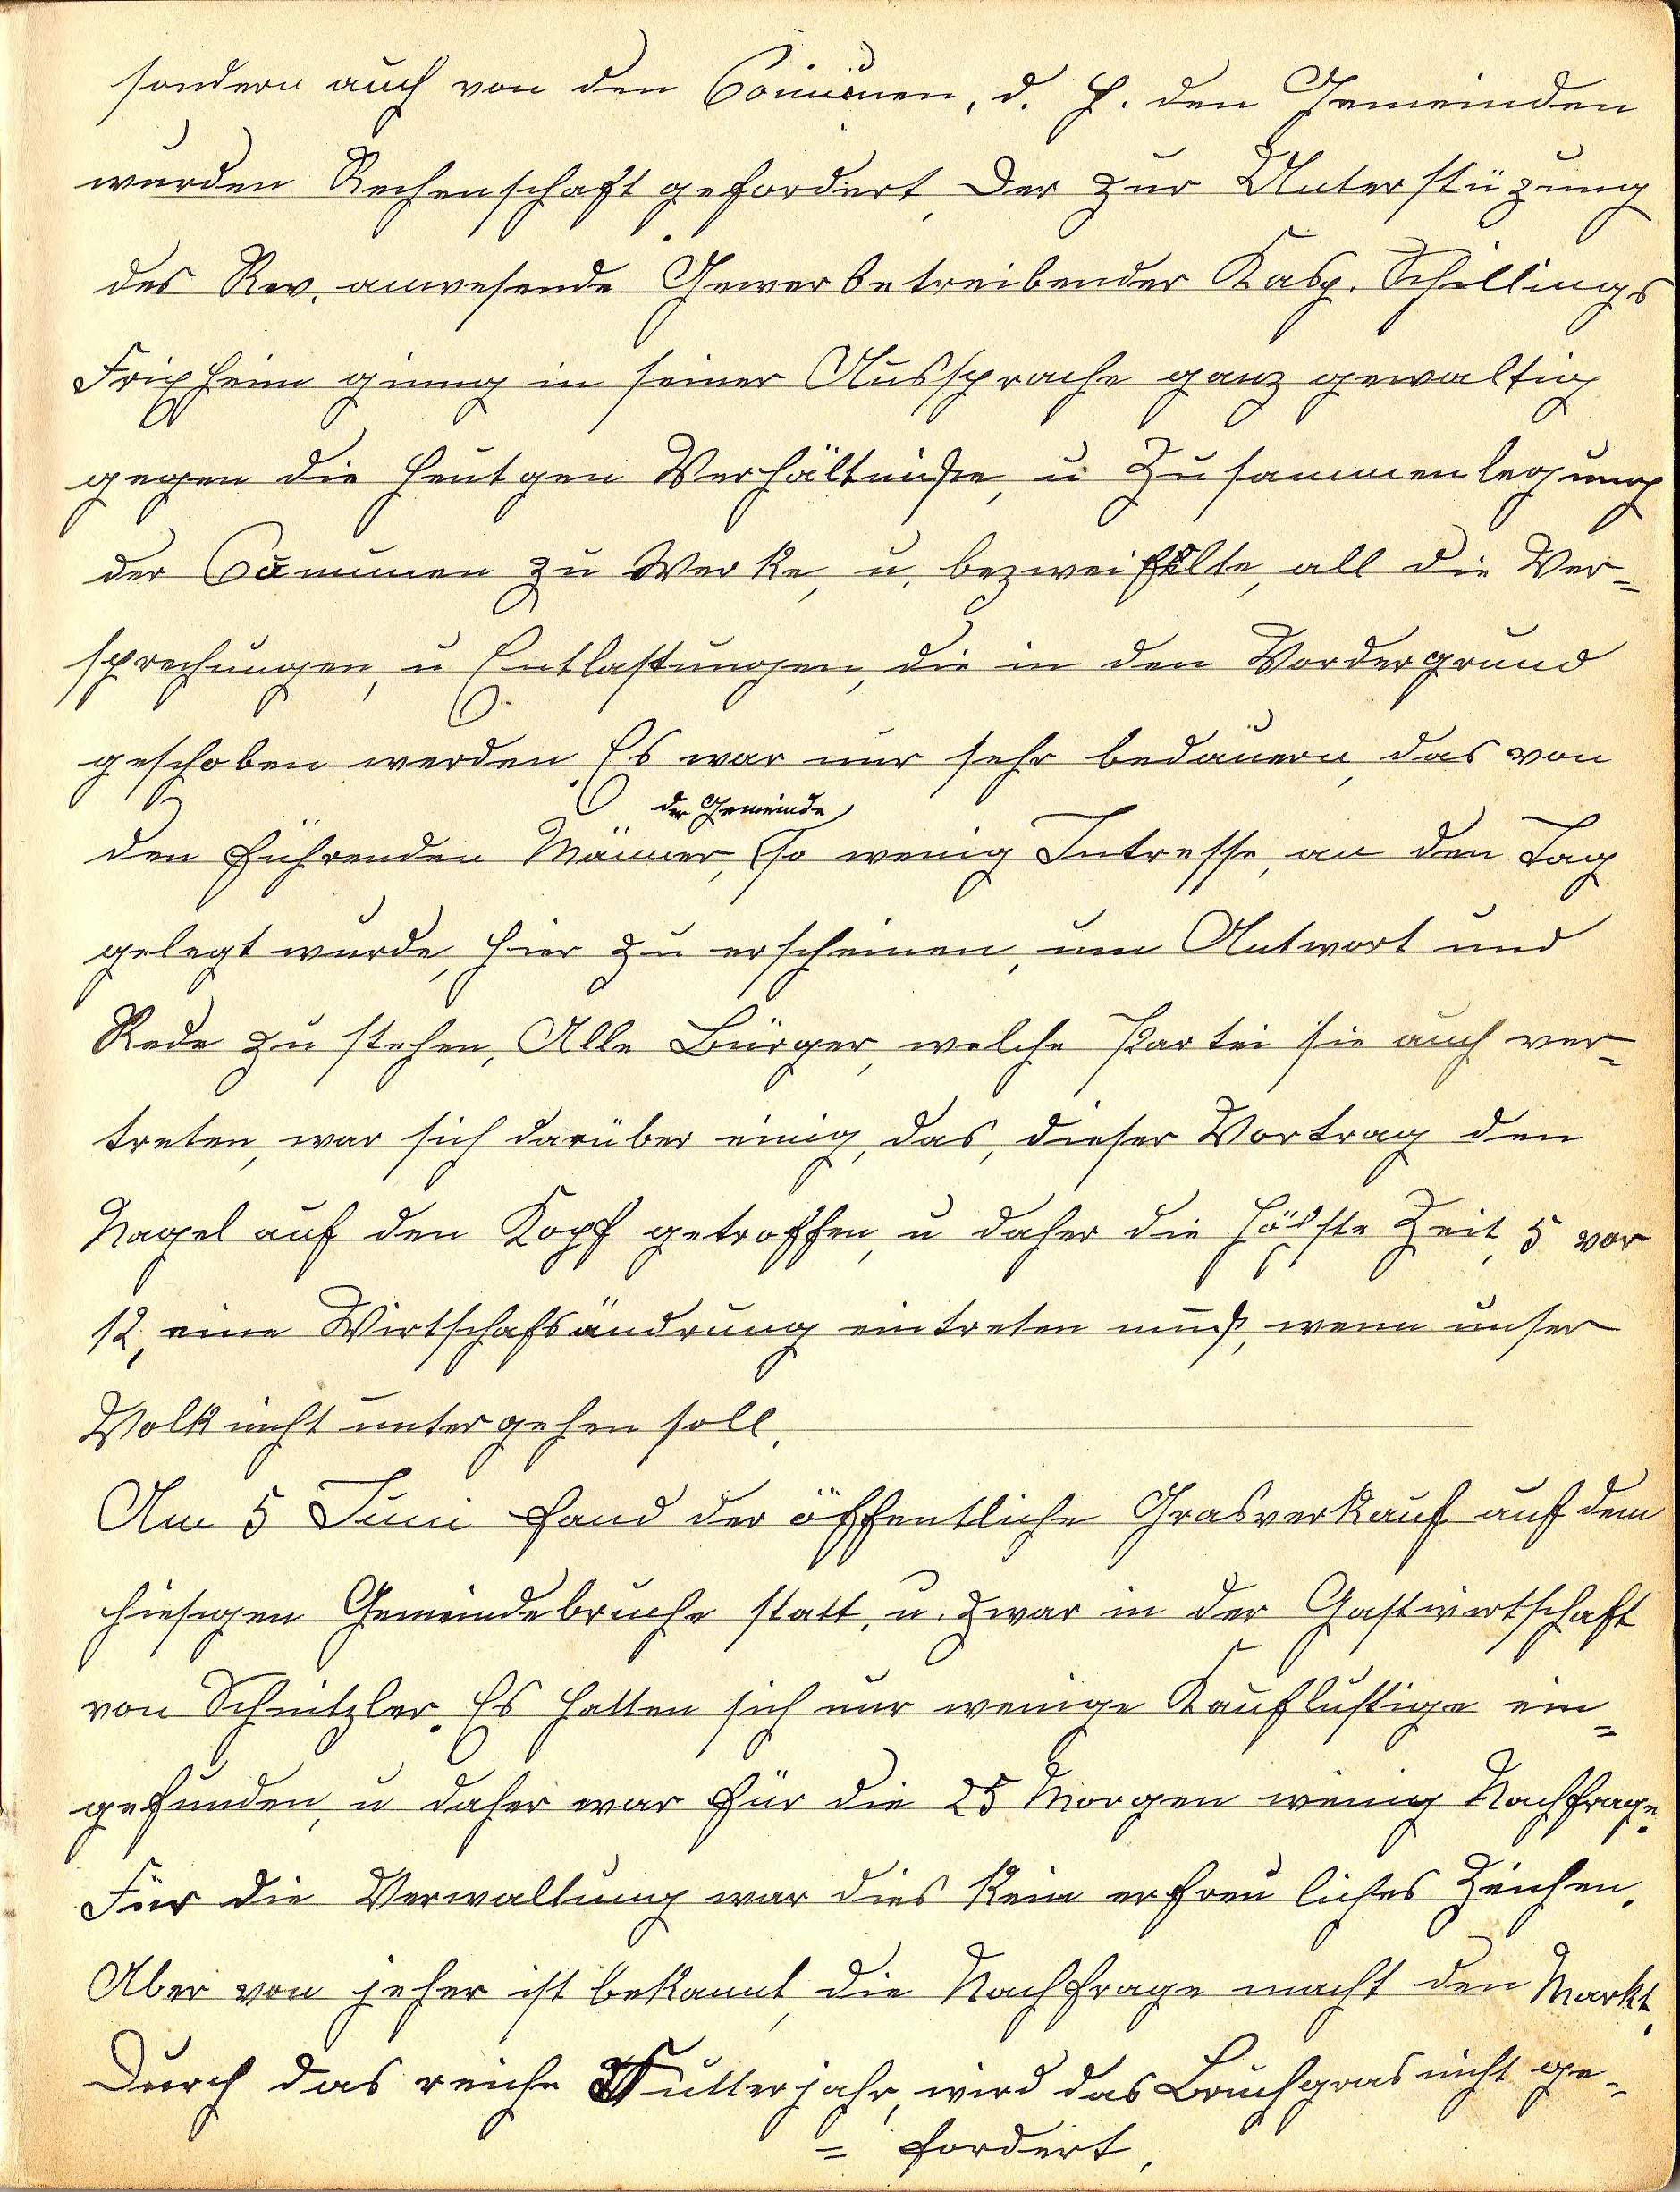 sondern auch von den Comunen, d. h. den Gemeinden
wurden Rechenschaft gefordert. Der zur Unterstüzung
des Rev. anwesende Gewerbetreibender Kasp. Schillings
Frixheim ging in seiner Aussprache ganz gewaltig
gegen die heutgen Verhältniße, u Zusammenlegung
der Comunen zu Werke, u. bezweifelte, all die Ver-
sprechungen, u Entlastungen, die in den Vordergrund
geschoben werden. Es war nur sehr bedauern, das von
der Gemeinde
den führenden Männer, so wenig Intresse, an den Tag
gelegt wurde, hier zu erscheinen, um Antwort und
Rede zu stehen, Alle Bürger, welche Partei sie auch ver-
treten, war sich darüber einig, das, dieser Vortrag den
Nagel auf den Kopf getroffen, u daher die höchste Zeit, 5 vor
12, eine Wirtschafsändrung eintreten muß, wenn unser
Volk nicht untergehen soll.
Am 5 Juni fand der öffentliche Grasverkauf auf dem
hiesigen Gemeindebruche statt, u. zwar in der Gastwirtschaft
von Schnitzler. Es hatten sich nur wenige Kauflustige ein-
gefunden, u daher war für die 25 Morgen wenig Nachfrage.
Für die Verwaltung war dies kein erfreuliches Zeichen.
Aber von jeher ist bekannt, die Nachfrage macht den Markt.
Durch das reiche Futterjahr, wird das Bruchgras nicht ge-
= fordert.